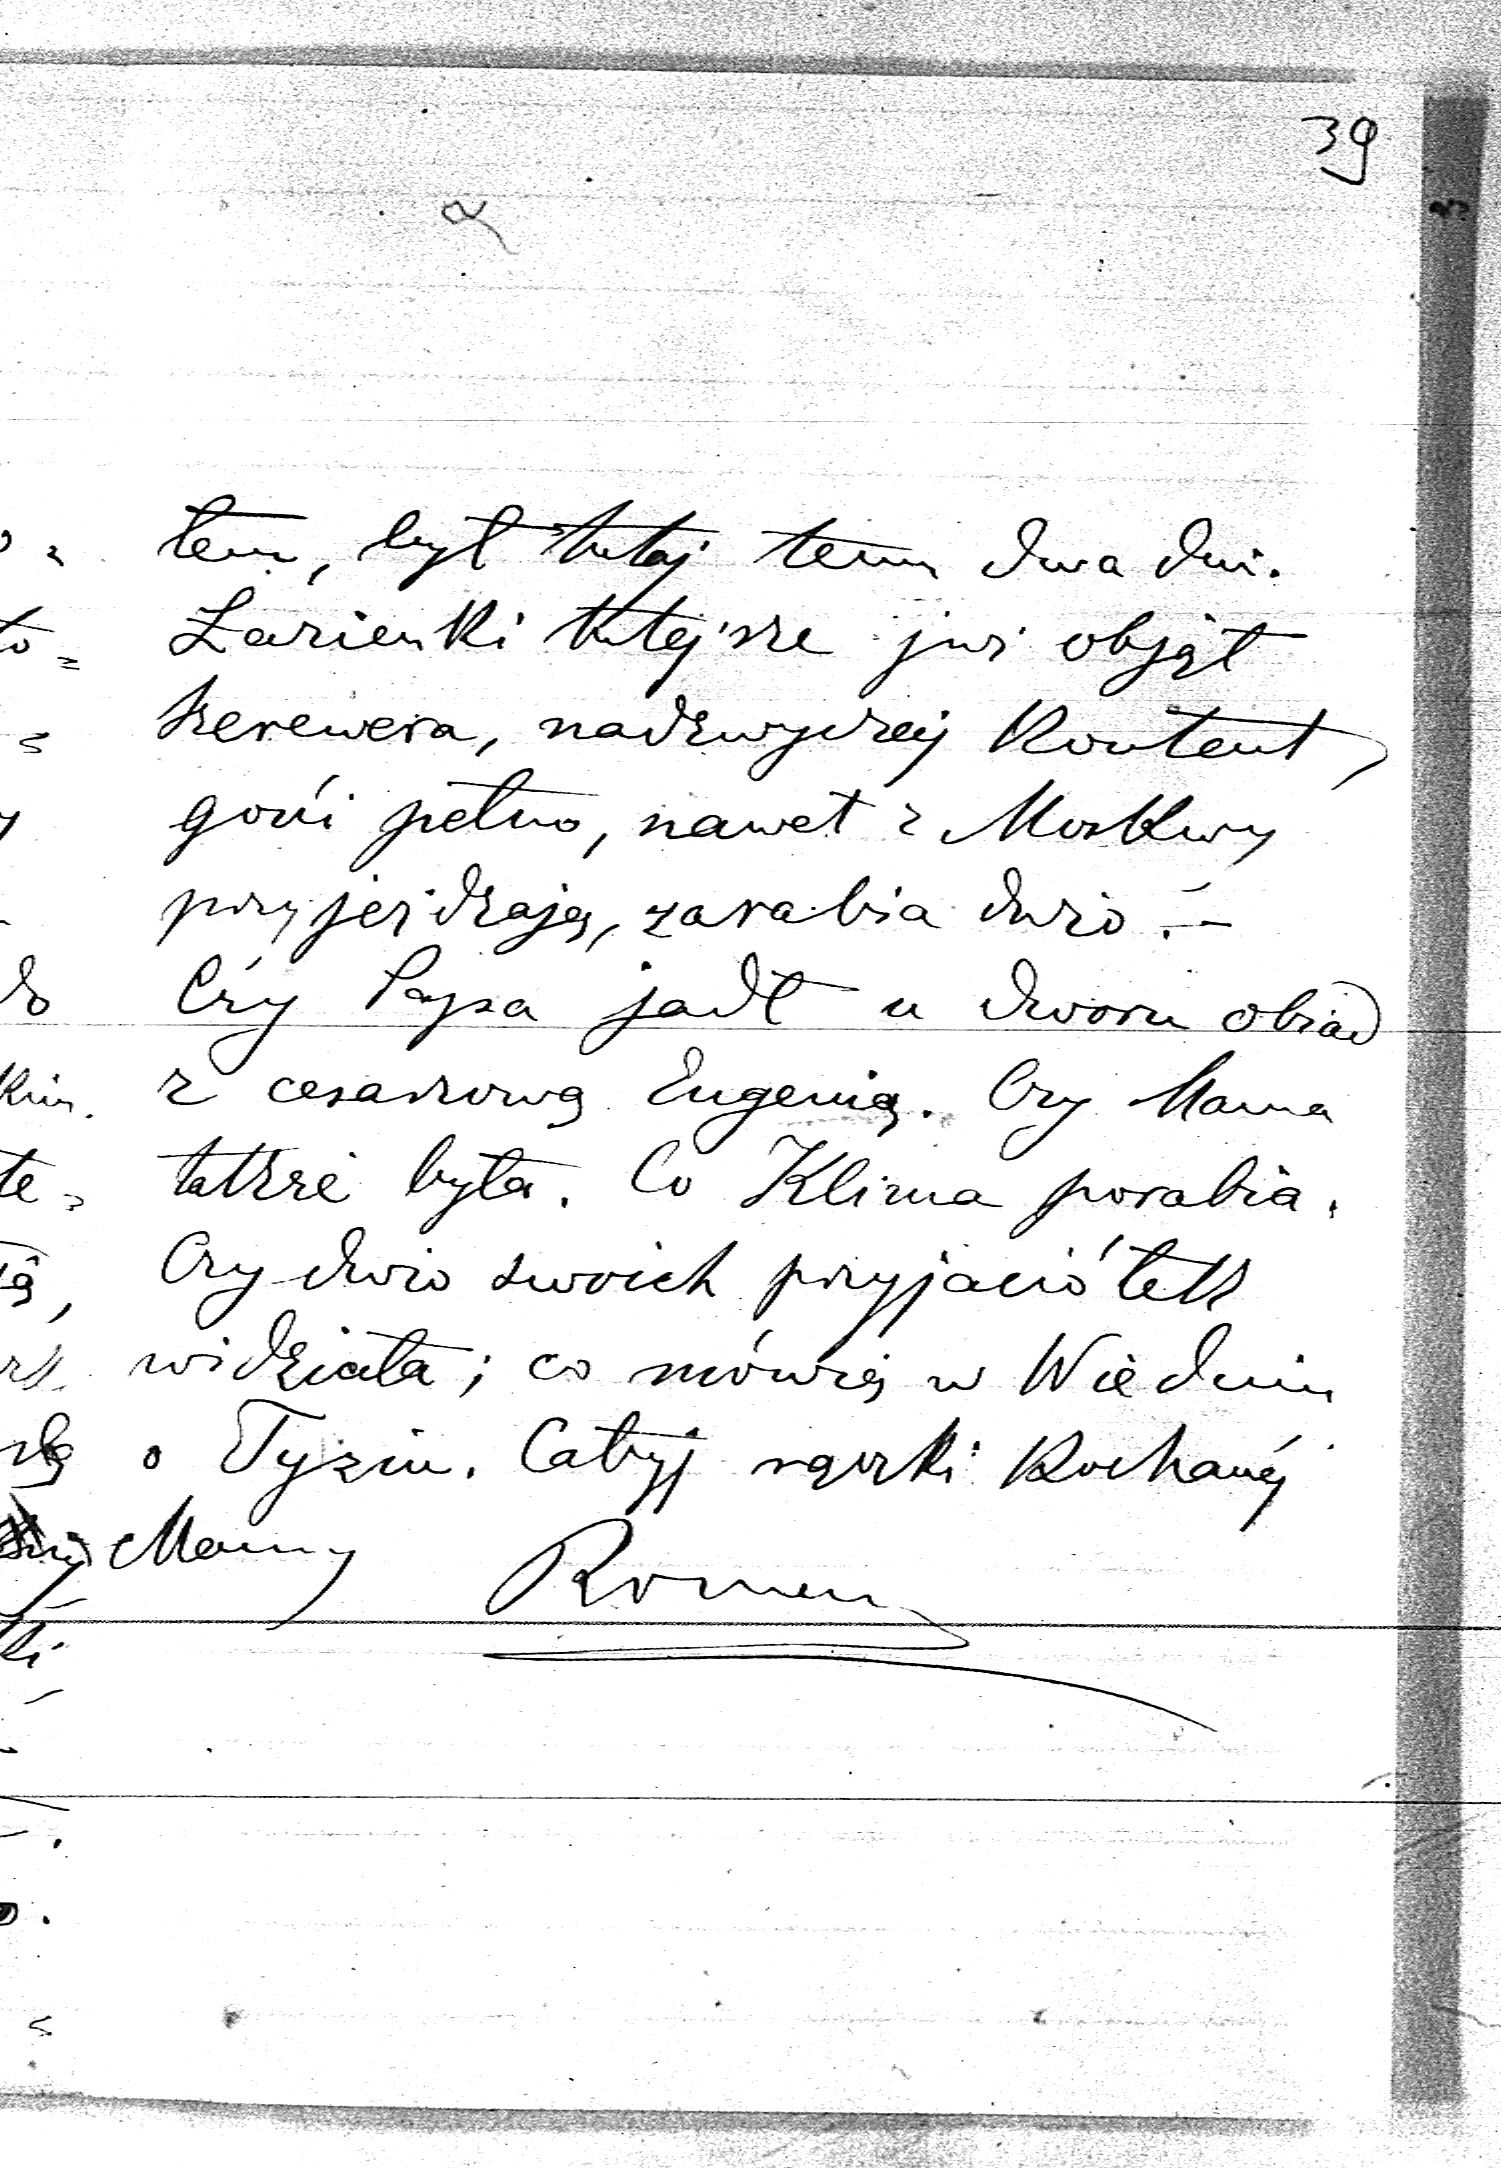 39
tem, był tutaj temu dwa dni.
Łazienki tutejsze już objął
nadzwyczaj Kontent,
gości pełno, nawet z Moskwy
przyjeżdżają, zarabia dużo. –
Czy Papa jadł u dworu obiad
z cesarzową Eugenią. Czy Mama
także była. Co Klima porabia.
Czy dużo swoich przyjaciółek
widziała; co mówią w Wiedniu
o Tyziu. Całuję rączki Kochanéj
Mamy Roman